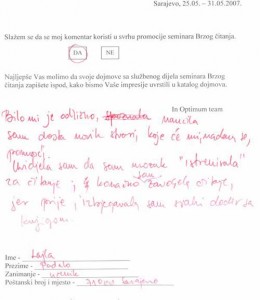 Sarajevo, 25.05. – 31.05.2007.
Slažem se da se moj komentar koristi u svrhu promocije seminara Brzog čitanja.
DA NE
Najljepše Vas molimo da svoje dojmove sa službenog dijela seminara Brzog
čitanja zapišete ispod, kako bismo Vaše impresije uvrstili u katalog dojmova.
In Optimum team
Bilo mi je odlično, naučila
sam dosta novih stvari, koje će mi, nadam se,
pomoći.
Uvidjela sam da sam mozak "istrenirala"
za čitanje i konačno sam zavoljela čitanje,
jer prije izbjegavala sam svaki dodir sa
knjigom.
Ime - Lajla
Prezime -
Zanimanje - učenik
Poštanski broj i mjesto - 71000 Sarajevo